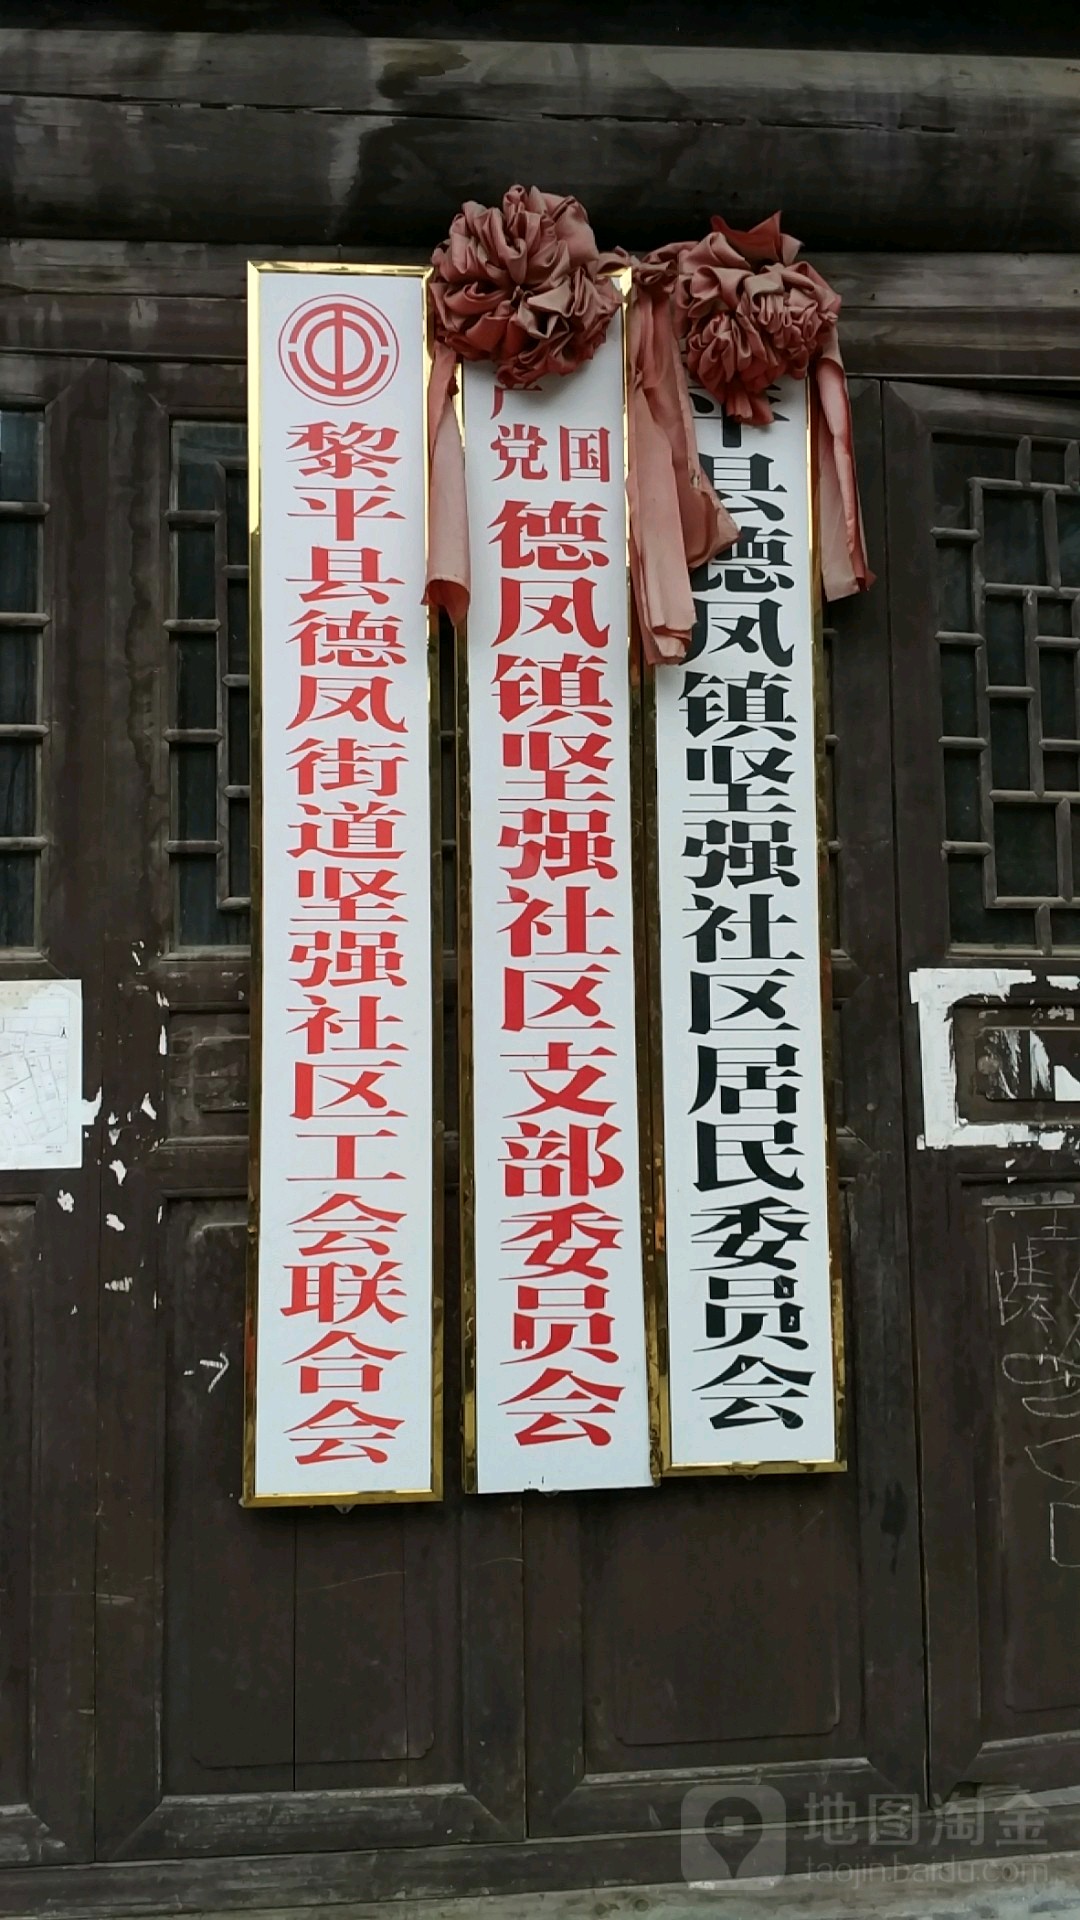 黎平县德凤街道坚强社区工会联合会
国
产党
德凤镇坚强社区支部委员会
平县德凤镇坚强社区居民委员会
地图淘金
taojin.baidu.com